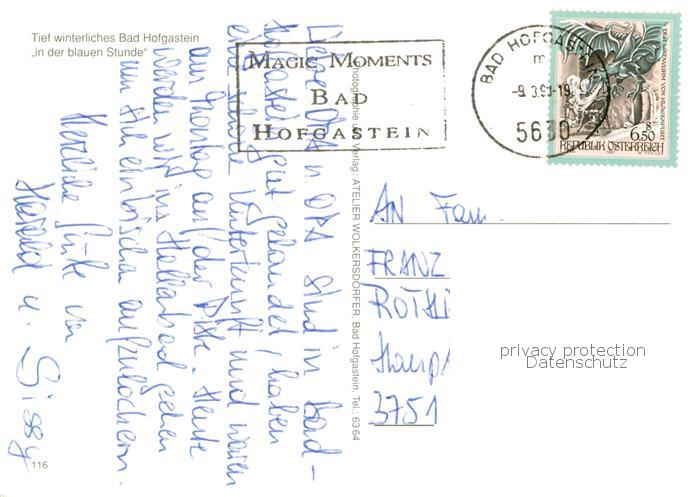 Tief winterliches Bad Hofgastein
„in der blauen Stunde“
MAGIC MOMENTS
BAD
HOFGASTEIN
BAD HOFGASTEIN
5630
DER LINDWURM VON KLAGENFURT
6.50
REPUBLIK ÖSTERREICH
Photographie u. Verlag: ATELIER WOLKERSDORFER, Bad Hofgastein, Tel.: 6364
Liebe OMA u. OPA sind in Bad-
hofgastein gut gelandet, haben
eine schöne Unterkunft und waren
am Montag auf der Piste. Heute
werden wir ins Hallenbad gehen
um uns ein bischen aufzulockern.
Herzliche Grüße von
Harald u. Sissy
AN Fam.
FRANZ
ROTH
Haupt
3751
privacy protection
Datenschutz
116